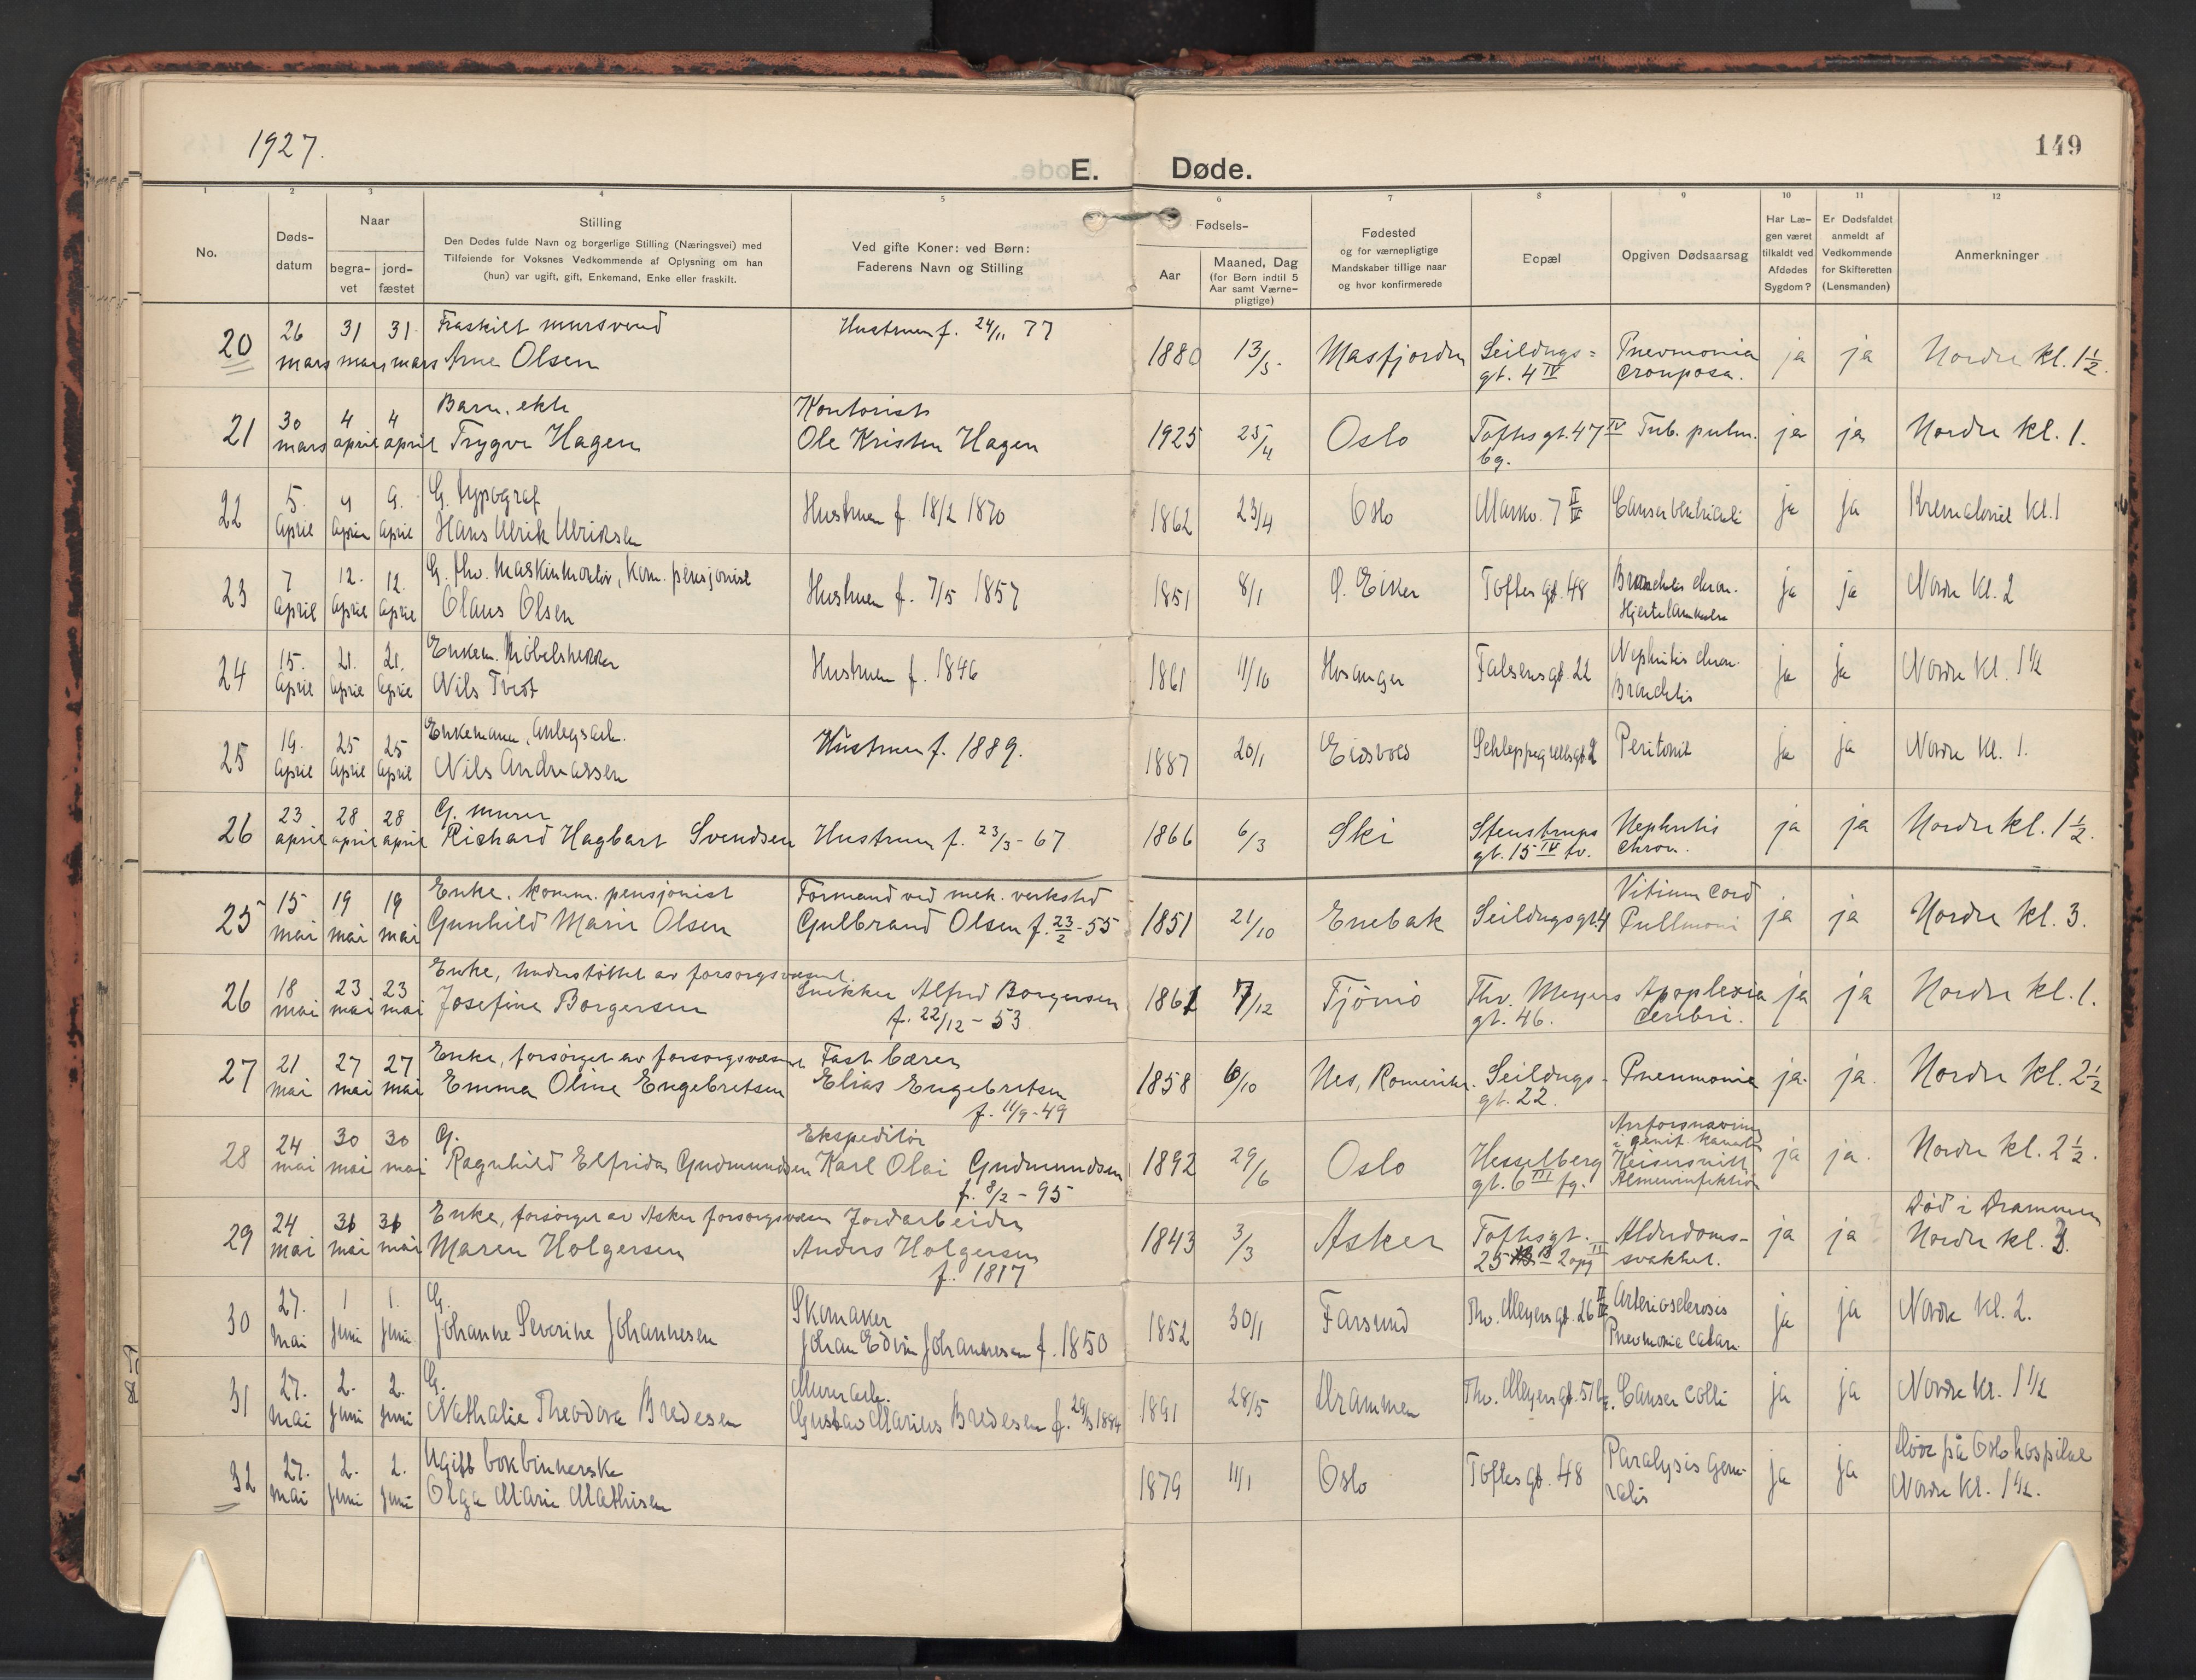 1927.
149
E. Døde.
1 2 3 4 5 6 7 8 9 10 11 12
No.
Døds-
datum
Naar
begra-
vet
jord-
fæstet
Stilling
Den Dødes fulde Navn og borgerlige Stilling (Næringsvei) med
Tilføiende for Voksnes Vedkommende af Oplysning om han
(hun) var ugift, gift, Enkemand, Enke eller fraskilt.
Ved gifte Koner: ved Børn:
Faderens Navn og Stilling
Fødsels-
Aar
Maaned, Dag
(for Børn indtil 5
Aar samt Værne-
pligtige)
Fødested
og for værnepligtige
Mandskaber tillige naar
og hvor konfirmerede
Bopæl
Opgiven Dødsaarsag
Har Læ-
gen været
tilkaldt ved
Afdødes
Sygdom?
Er Dødsfaldet
anmeldt af
Vedkommende
for Skifteretten
(Lensmanden)
Anmerkninger
20 26 31 31 Fraskilt mursvend Hustruen f. 24/11 77
mars mars mars Arne Olsen 1880 13/5 Masfjorden Seildugs=
gt. 4 IV Pnevmonia
crouposa. ja ja Nordre kl. 1 1/2.
21 30 4 4 Barn, ekte Kontorist
mars april april Trygve Hagen Ole Kristen Hagen 1925 25/4 Oslo Toftesgt. 47 IV
bg. Tub. pulm. ja ja Nordre kl. 1.
22 5. 9 9. G. typograf
april april april Hans Ulrik Ulriksen Hustruen f. 18/2 1870 1862 23/4 Oslo Markv. 7 II
IV Cancer ventriculi ja ja Krematoriet kl. 1
23 7 12. 12. G. fhv. maskinmester, kom. pensjonist
april april april Olaus Olsen Hustruen f. 7/5 1857 1851 8/1 Ø. Eiker Toftes gt. 48 Bronchitis chron.
ja ja Nordre kl. 2
24 15. 21. 21. Enkem. Møbelsnekker
april april april Nils Tveit Hustruen f. 1846 1861 11/10 Hosanger Falsensgt. 22 Nephritis chron.
Bronchitis ja ja Nordre kl. 1 1/2
25 19. 25 25 Enkemann, anlegsarb.
april april april Nils Andreassen Hustruen f. 1889. 1887 20/1 Eidsvold Schleppegrellsgt. 2 Peritonit ja ja Nordre kl. 1.
26 23 28 28 G. murer
april april april Richard Hagbart Svendsen Hustruen f. 23/3 - 67 1866 6/3 Ski Stenstrups
gt. 15 IV tv. Nephritis
chron. ja ja Nordre kl. 1 1/2.
25 15 19 19 Enke, komm. pensjonist Formand ved mek. verksted
mai mai mai Gunhild Marie Olsen Gulbrand Olsen f. 23/2 - 55 1851 21/10 Enebak Seildugsgt. 4 Vitium cord
Pullmoni ja ja Nordre kl. 3.
26 18 23 23 Enke, understøttet av forsorgsvæsenet
mai mai mai Josefine Borgersen Snekker Alfred Borgersen
f. 22/12 - 53 1861 7/12 Tjömö Thv. Meyers
gt. 46. Apoplexia
cerebri. ja ja Nordre kl. 1.
27 21 27 27 Enke, forsørget av forsorgsvæsenet Fast bærer
mai mai mai Emma Oline Engebretsen Elias Engebretsen
f. 11/9 - 49 1858 6/10 Nes, Romerike. Seildugs-
gt. 22. Pneumonie ja. ja. Nordre kl. 2 1/2
28 24 30 30 G. Ekspeditør
mai mai mai Ragnhild Elfrida Gudmundsen Karl Olai Gudmundsen
f. 8/2 - 95 1892 29/6 Oslo Hesselberg
gt. 6 III fg. Arrforsnævring
i genit. kanal
Keisersnitt
Almeninfektion ja ja. Nordre kl. 2 1/2.
29 24 31 31 Enke, forsørget av Asker forsorgsvæsen Jordarbeider
mai mai mai Maren Holgersen Anders Holgersen
f. 1817 1843 3/3 Asker Toftesgt.
25 2 opg Alderdoms-
svakhet. ja ja Død i Drammen
Nordre kl. 3.
30 27. 1 1. G. Skomaker
mai juni juni Johanne Severine Johannesen Johan Edvin Johannesen f. 1850 1852 30/1 Farsund Thv. Meyers gt. 26 II
IV Arteriosclerosis
Pnevmonia catarr. ja ja Nordre kl. 2.
31 27. 2. 2. G. Murerarb.
mai juni juni Nathalie Theodora Bredesen Gustav Marius Bredesen f. 29/3 1884 1891 28/5 Drammen Thv. Meyers gt. 51 bg. Cancer colli ja ja Nordre kl. 1 1/2
32 27. 2. 2. Ugift bokbinnerske
mai juni juni Olga Marie Mathisen 1879 11/1 Oslo Toftes gt. 48 Paralysis gene-
ralis ja ja Døde på Oslo hospital
Nordre kl. 1 1/2.